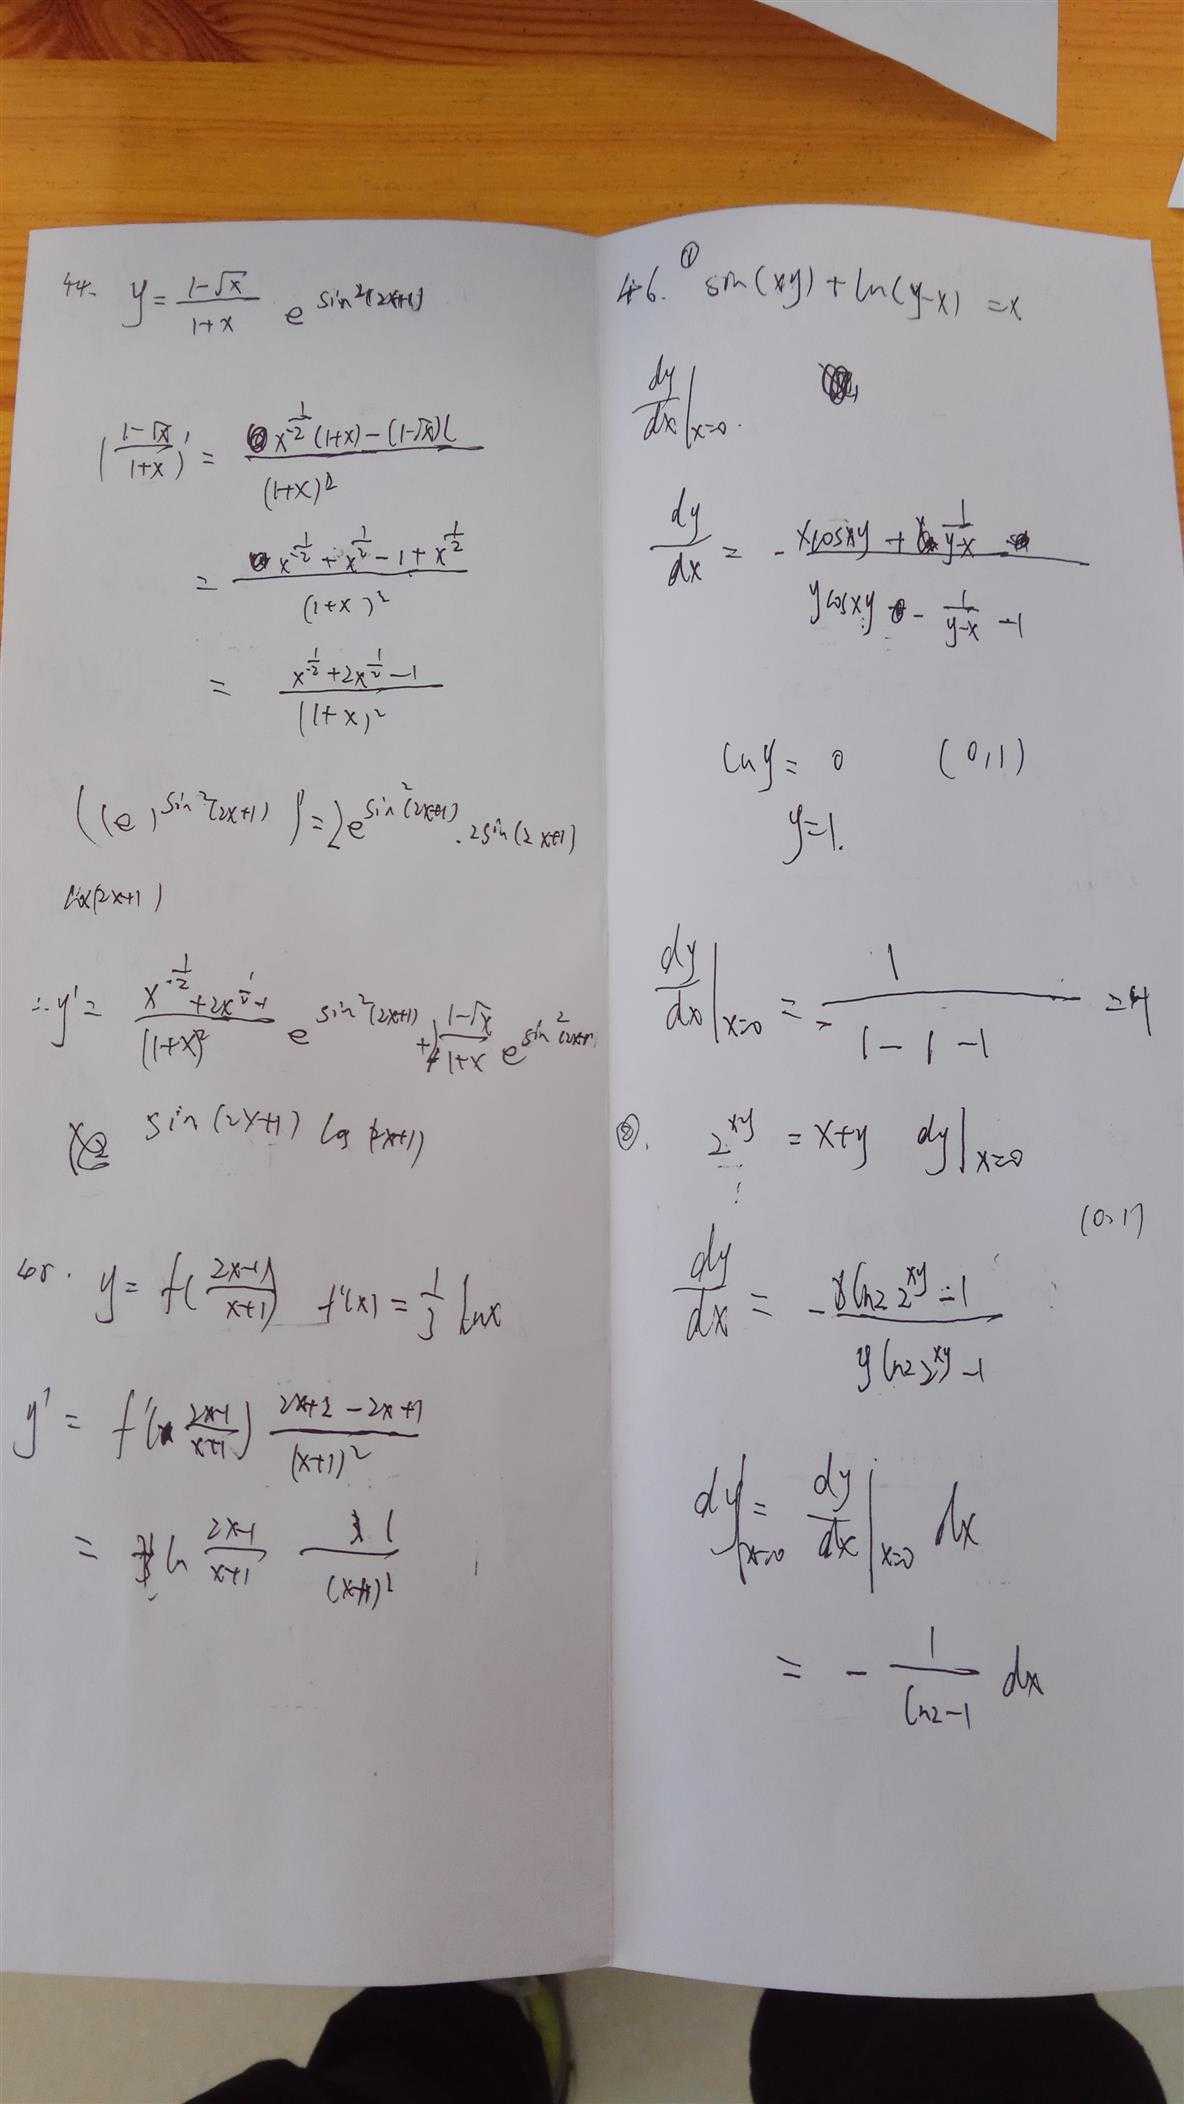 44. y = \frac{1-\sqrt{x}}{1+x} e^{sin^2(2x+1)}
(\frac{1-\sqrt{x}}{1+x})' = \frac{x^{-\frac{1}{2}}(1+x)-(1-\sqrt{x})1}{(1+x)^2}
= \frac{x^{-\frac{1}{2}}+x^{\frac{1}{2}}-1+x^{\frac{1}{2}}}{(1+x)^2}
= \frac{x^{-\frac{1}{2}}+2x^{\frac{1}{2}}-1}{(1+x)^2}
((e)^{sin^2(2x+1)})' = 2e^{sin^2(2x+1)} · 2sin(2x+1)
cos(2x+1)
∴ y' = \frac{x^{-\frac{1}{2}}+2x^{\frac{1}{2}}-1}{(1+x)^2} e^{sin^2(2x+1)} + 4\frac{1-\sqrt{x}}{1+x} e^{sin^2(2x+1)}
sin(2x+1) cos(2x+1)
45. y = f(\frac{2x-1}{x+1}) f'(x) = \frac{1}{3} lnx
y' = f'(\frac{2x-1}{x+1}) \frac{2x+2-2x+1}{(x+1)^2}
= ln \frac{2x-1}{x+1} \frac{1}{(x+1)^2}
46. ① sin(xy)+ln(y-x) = x
\frac{dy}{dx}|_{x=0}.
\frac{dy}{dx} = -\frac{xcosxy+\frac{1}{y-x}}{ycosxy-\frac{1}{y-x}-1}
lny = 0 (0,1)
y=1.
\frac{dy}{dx}|_{x=0} = \frac{1}{1-1-1} =
②. 2^{xy} = x+y dy|_{x=0}
(0,1)
\frac{dy}{dx} = -\frac{xln2 2^{xy}-1}{yln2 2^{xy}-1}
dy|_{x=0} = \frac{dy}{dx}|_{x=0} dx
= -\frac{1}{ln2-1} dx